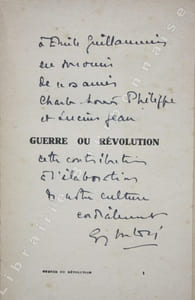 à Emile Guillaumin
en souvenir
de nos amis
Charles-Louis Philippe
et Lucien Jean
GUERRE OU RÉVOLUTION
cette contribution
à l'élaboration
de notre culture
cordialement
GUERRE OU RÉVOLUTION 1